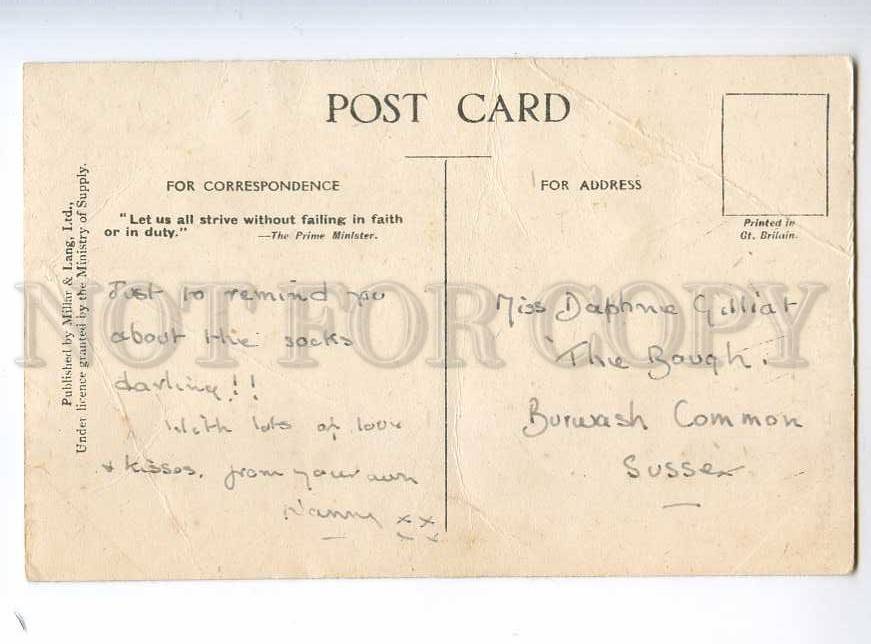 POST CARD
FOR CORRESPONDENCE
"Let us all strive without failing in faith
or in duty."
—The Prime Minister.
Just to remind you
about the socks
darling!!
With lots of love
& kisses. from your own
Nanny xx
xx
FOR ADDRESS
Printed in
Gt. Britain.
Miss Daphne Gilliat
The Bough.
Burwash Common
Sussex
Published by Millar & Lang, Ltd.,
Under licence granted by the Ministry of Supply.
NOT FOR COPY